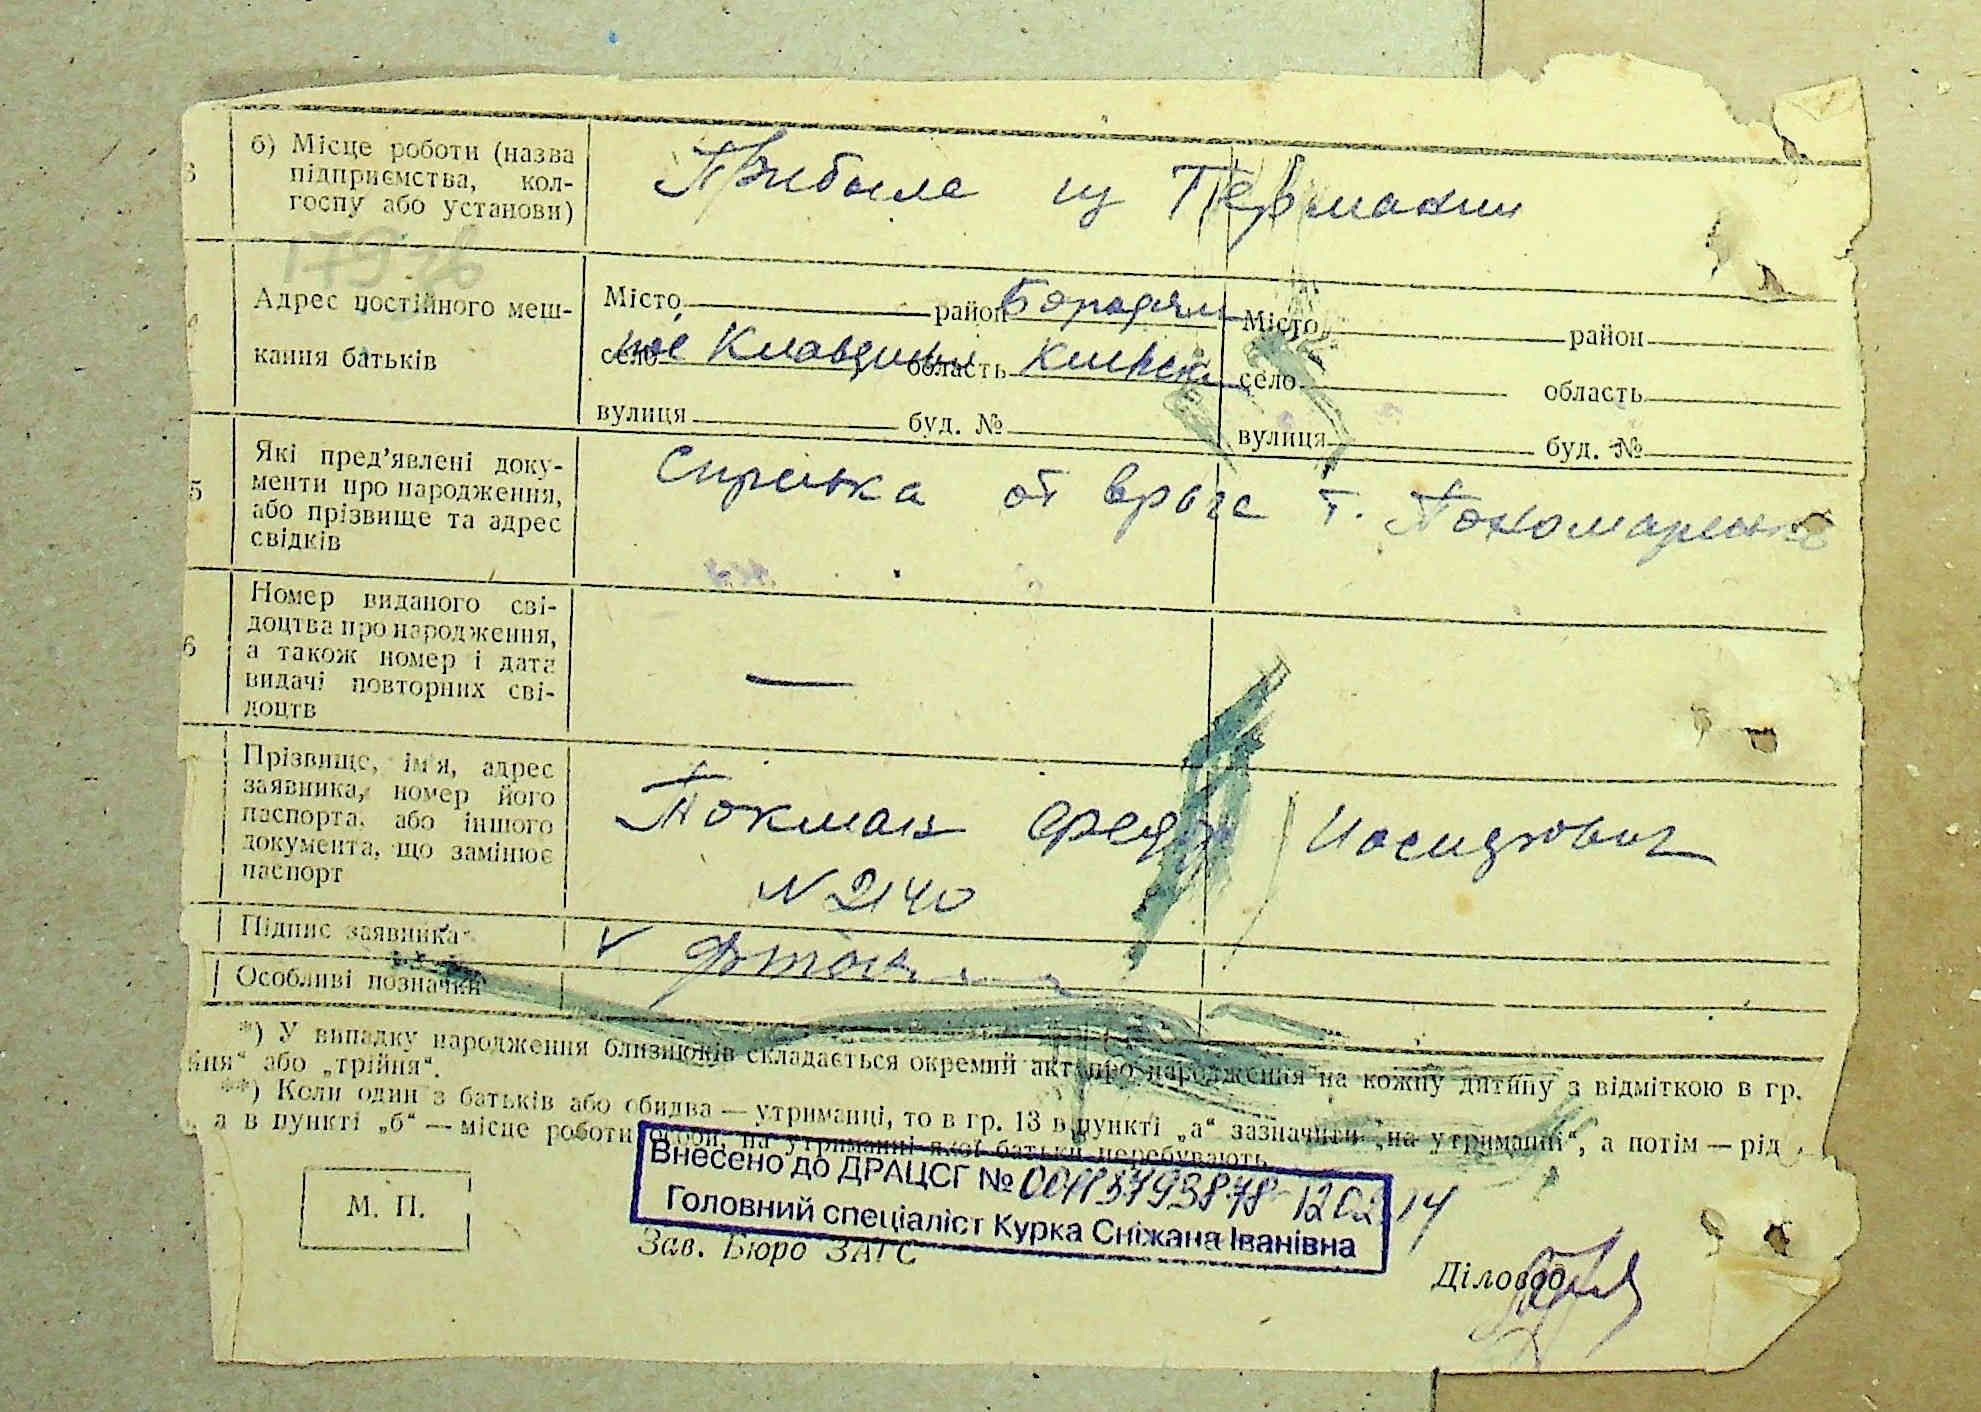 б) Місце роботи (назва
підприємства, кол-
госпу або установи)
Прибыла из Германии
Адрес постійного меш-
кання батьків
Місто район Бородян
село область Киевск
вулиця буд. №
Місто район
село область
вулиця буд. №
5
Які пред'явлені доку-
менти про народження,
або прізвище та адрес
свідків
Справка от врача т. Пономаренко
6
Номер виданого сві-
доцтва про народження,
а також номер і дата
видачі повторних сві-
доцтв
—
Прізвище, ім'я, адрес
заявника, номер його
паспорта, або іншого
документа, що замінює
паспорт
Токман Федор Иосипович
N 2140
Підпис заявника
Особливі позначки
*) У випадку народження близнюків складається окремий акт про народження на кожну дитину з відміткою в гр.
йня" або „трійня".
**) Коли один з батьків або обидва — утриманці, то в гр. 13 в пункті „а" зазначити „на утриманні", а потім — рід
а в пункті „б" — місце роботи особи, на утриманні якої батьки перебувають
Внесено до ДРАЦСГ № 12 02 14
Головний спеціаліст Курка Сніжана Іванівна
М. П.
Зав. Бюро ЗАГС
Діловод